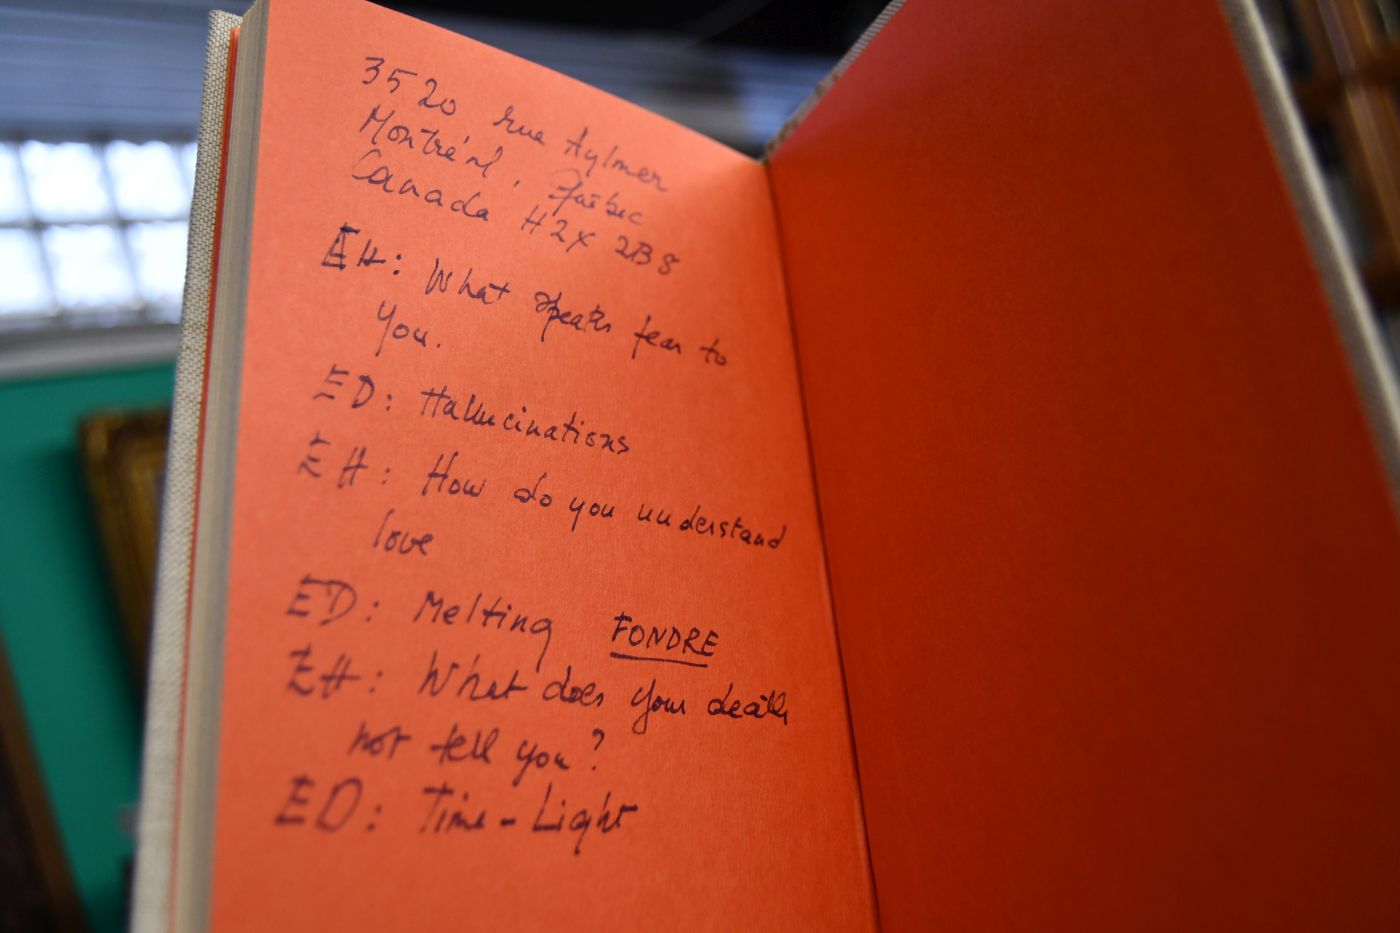 3520 rue Aylmer
Montréal, Québec
Canada H2X 2B8
EH: What speaks fear to
you.
ED: Hallucinations
EH: How do you understand
love
ED: Melting FONDRE
EH: What does your death
not tell you?
ED: Time-Light